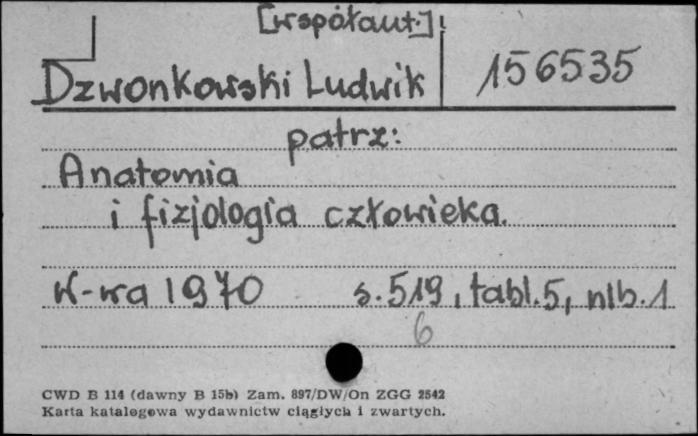 [współaut.]
Dzwonkowski Ludwik
156535
patrz:
Anatomia
i fizjologia człowieka.
W-wa 1970 s. 519, tabl. 5, nlb. 1
6
CWD B 114 (dawny B 15b) Zam. 897/DW/On ZGG 2542
Karta katalogowa wydawnictw ciągłych i zwartych.